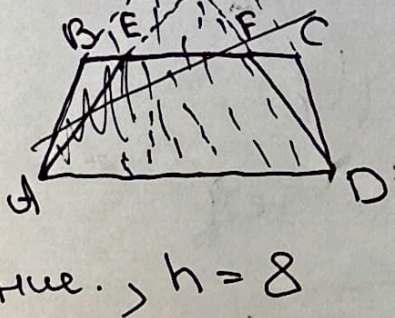 B E F C
A D
ние., h = 8